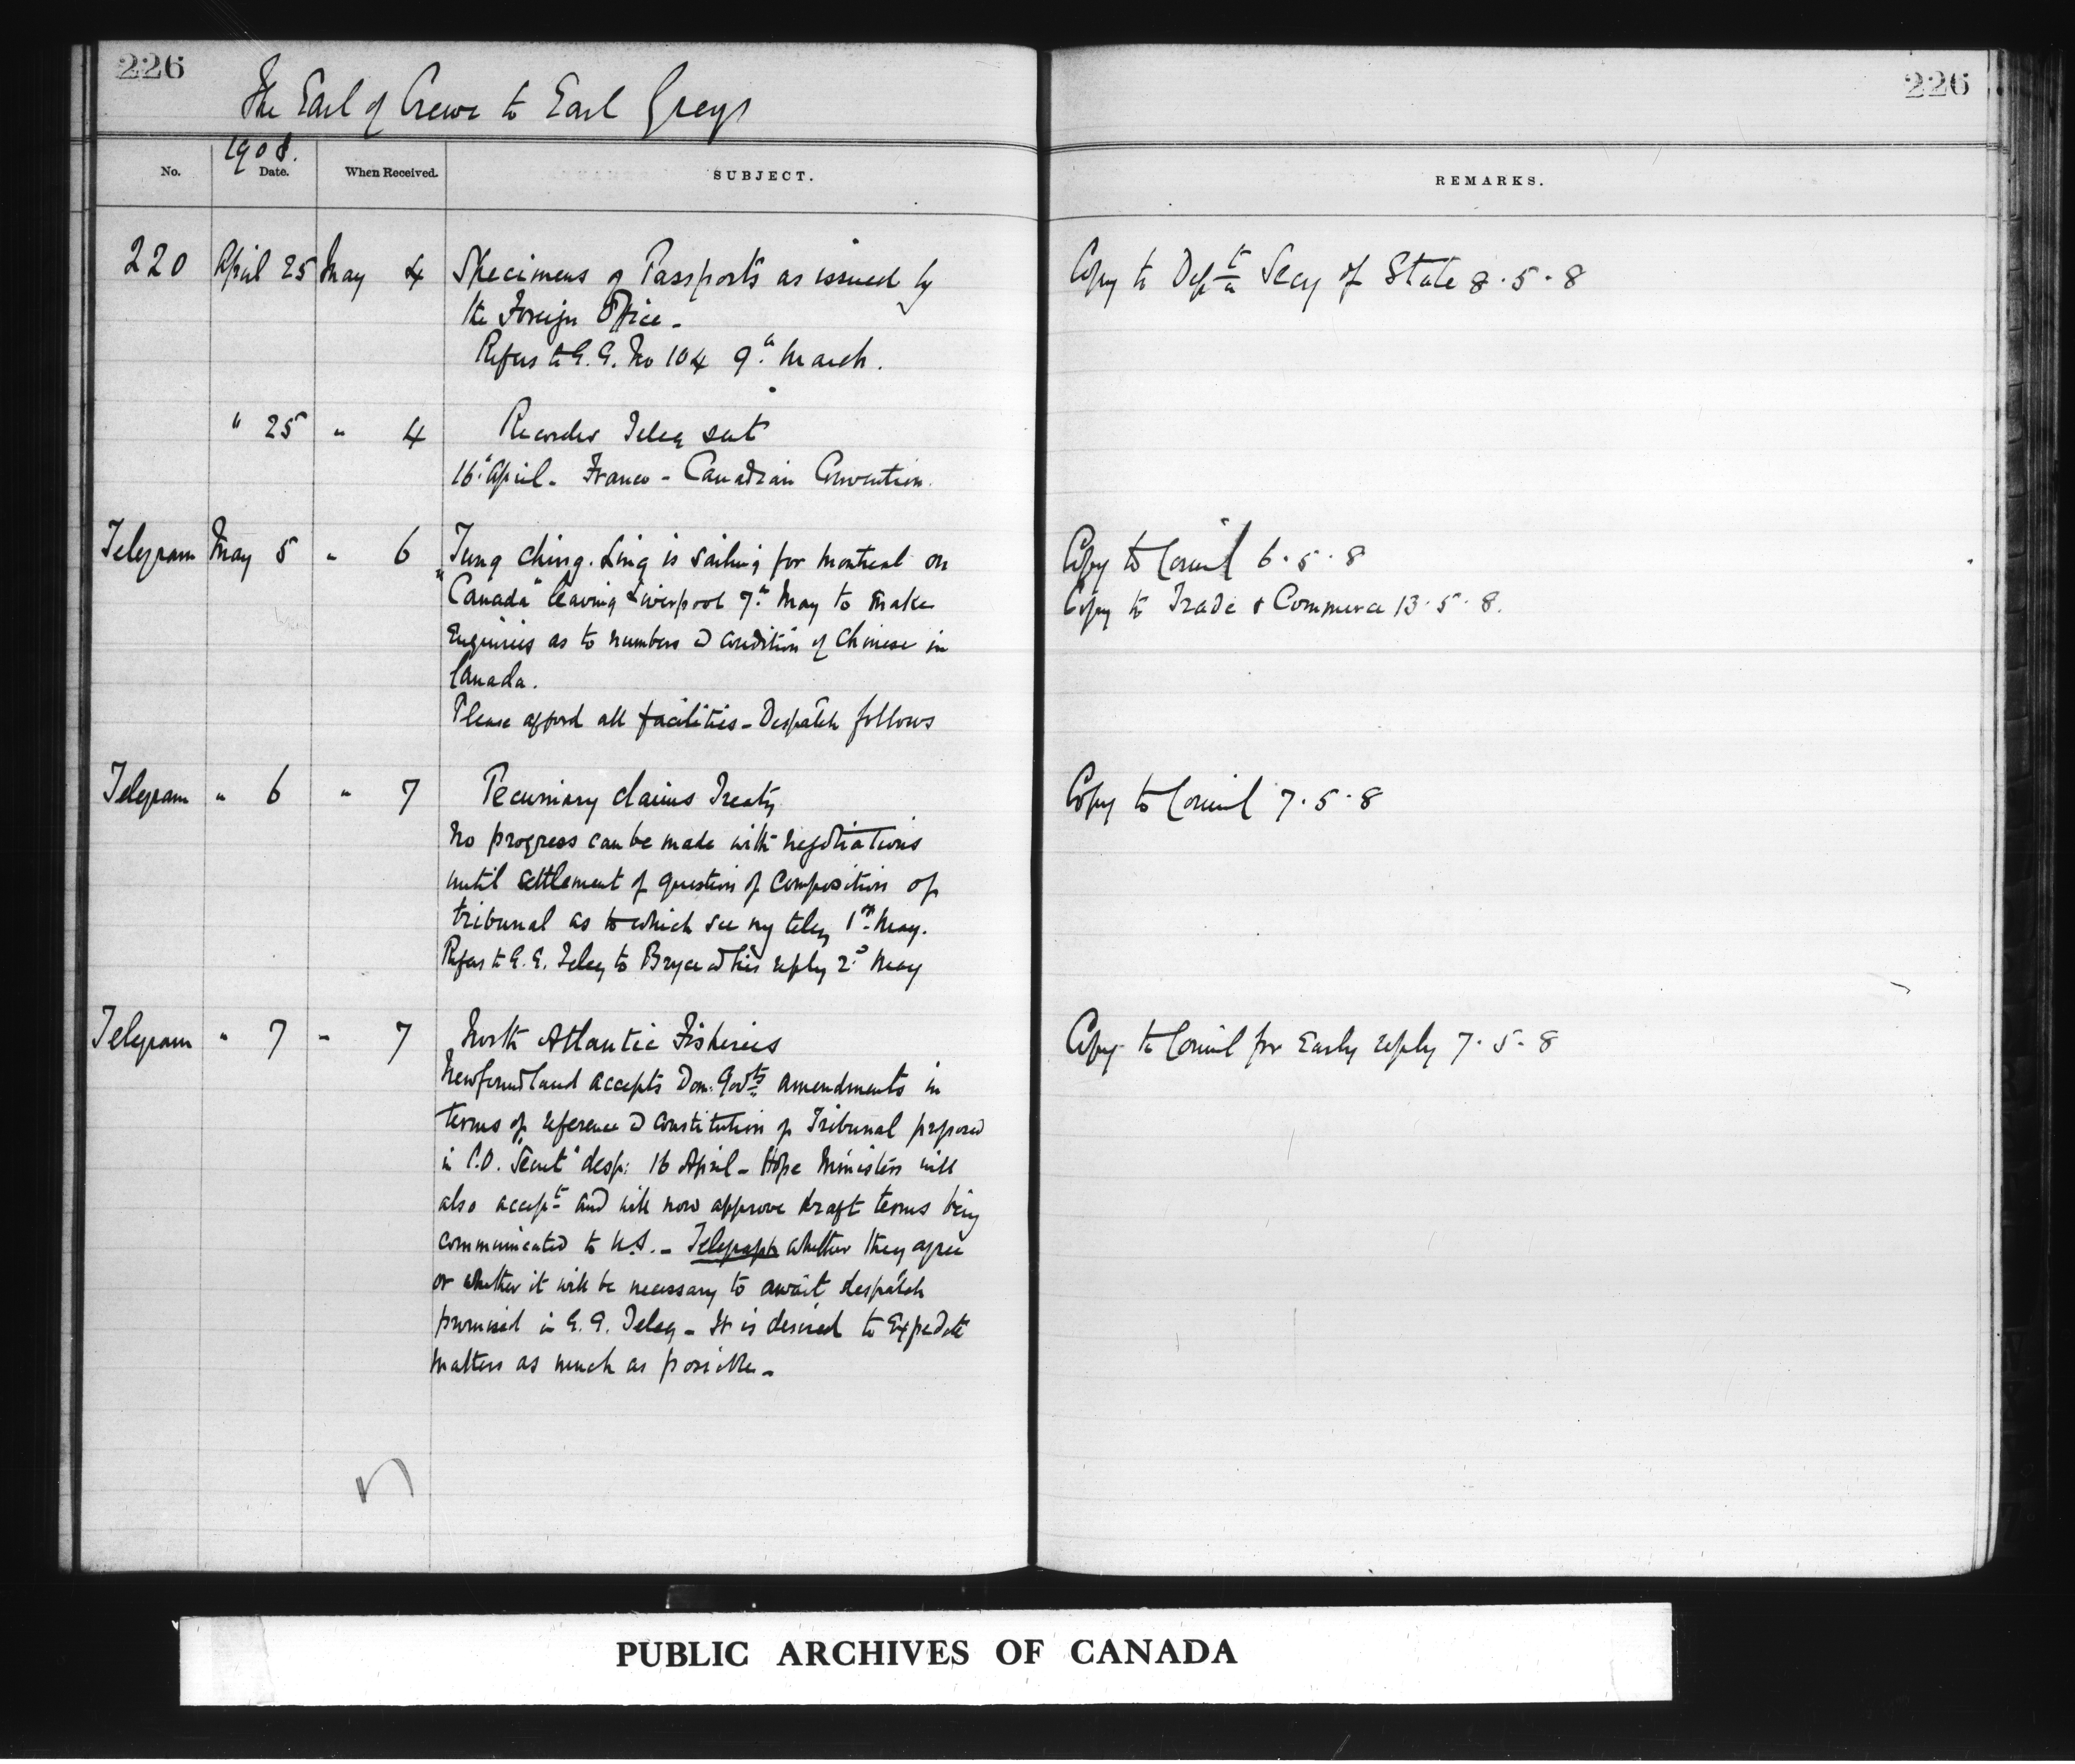 226
226
The Earl of Crewe to Earl Grey
1908.
No.
Date.
When Received.
SUBJECT.
REMARKS.
220 April 25 May 4 Specimens of Passports as issued by
the Foreign Office -
Refers to G.G. No 104 9th March.
Copy to Deptl Secy of State 8.5.8
" 25 " 4 Recorder Teleg sent
16th April - Franco-Canadian Convention.
Telegram May 5 " 6 Tung Ching Ling is sailing for Montreal on
"Canada" leaving Liverpool 7th May to make
Enquiries as to numbers & condition of Chinese in
Canada.
Please afford all facilities - Despatch follows
Copy to Council 6.5.8
Copy to Trade & Commerce 13.5.8.
Telegram " 6 " 7 Pecuniary claims Treaty
No progress can be made with negotiations
until settlement of question of composition of
tribunal as to which see my teleg 1st May.
Refers to G.G. Teleg to Bryce & his reply 2d May
Copy to Council 7.5.8
Telegram " 7 " 7 North Atlantic Fisheries
Newfoundland accepts Dom: Govts amendments in
terms of reference & constitution of Tribunal proposed
in C.O. "Secret" desp: 16 April - Hope Ministers will
also accept and will now approve draft terms being
communicated to U.S. - Telegraph whether they agree
or whether it will be necessary to await despatch
promised in G.G. Teleg - It is desired to Expedite
matters as much as possible -
Copy to Council for Early reply 7.5.8
PUBLIC ARCHIVES OF CANADA